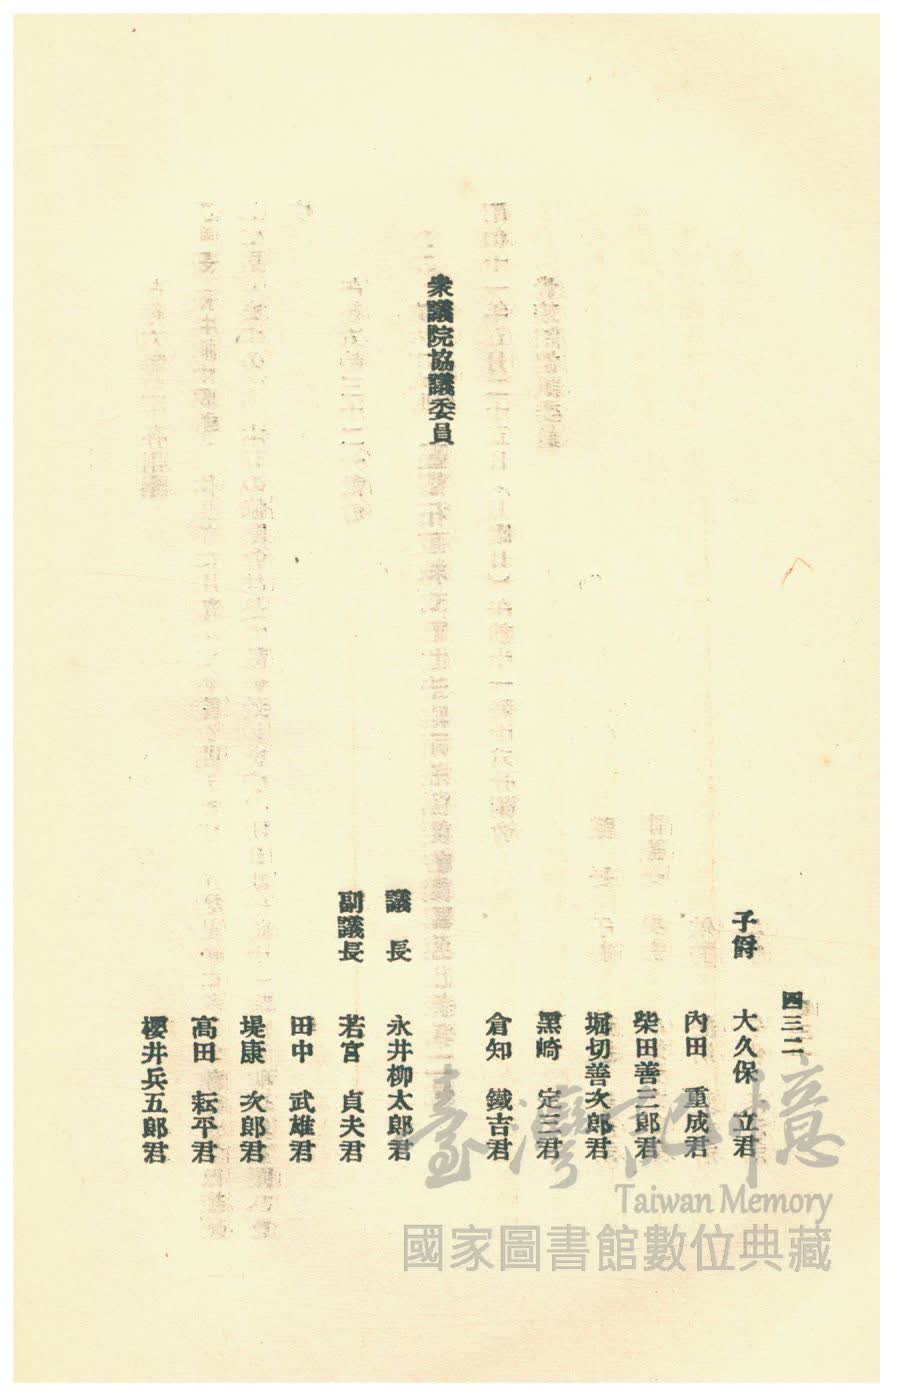 四三二
子爵 大久保 立君
內田 重成君
柴田善三郎君
堀切善次郎君
黑崎 定三君
倉知 鐵吉君
衆議院協議委員
議長 永井柳太郎君
副議長 若宮 貞夫君
田中 武雄君
堤康 次郎君
高田 耘平君
櫻井兵五郎君
臺灣記憶
Taiwan Memory
國家圖書館數位典藏